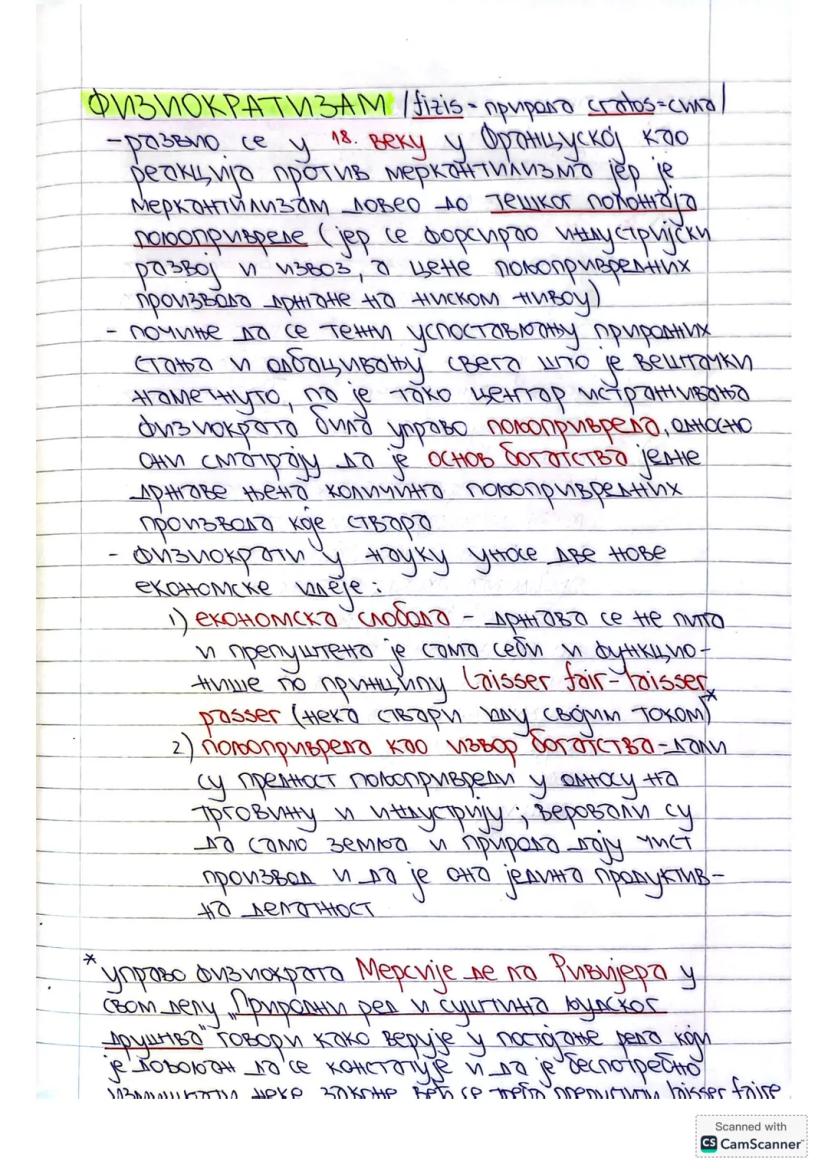 ФИЗИОКРАТИЗАМ /fizis=природа cratos=сила/
-развио се у 18. веку у Француској као
реакција против меркантилизма јер је
меркантилизам довео до тешког положаја
пољопривреде (јер се форсирао индустријски
развој и извоз, а цене пољопривредних
производа држане на ниском нивоу)
- почиње да се тежи успостављању природних
стања и одбацивању свега што је вештачки
наметнуто, па је тако центар истраживања
физиократа била управо пољопривреда, односно
они сматрају да је основ богатства једне
државе њена количина пољопривредних
производа које ствара
- физиократи у науку уносе две нове
економске идеје:
1) економска слобода - држава се не пита
и препуштена је сама себи и функцио-
нише по принципу laisser fair-laisser
passer (нека ствари иду својим током)*
2) пољопривреда као извор богатства-дали
су предност пољопривреди у односу на
трговину и индустрију; веровали су
да само земља и природа дају чист
производ и да је она једина продуктив-
на делатност
* управо физиократа Мерсије де ла Ривијера у
свом делу „Природни ред и суштина људског
друштва" говори како верује у постојање реда који
је довољан да се констатује и да је беспотребно
измишљати неке законе већ се треба препустити laisser faire
Scanned with
CS CamScanner